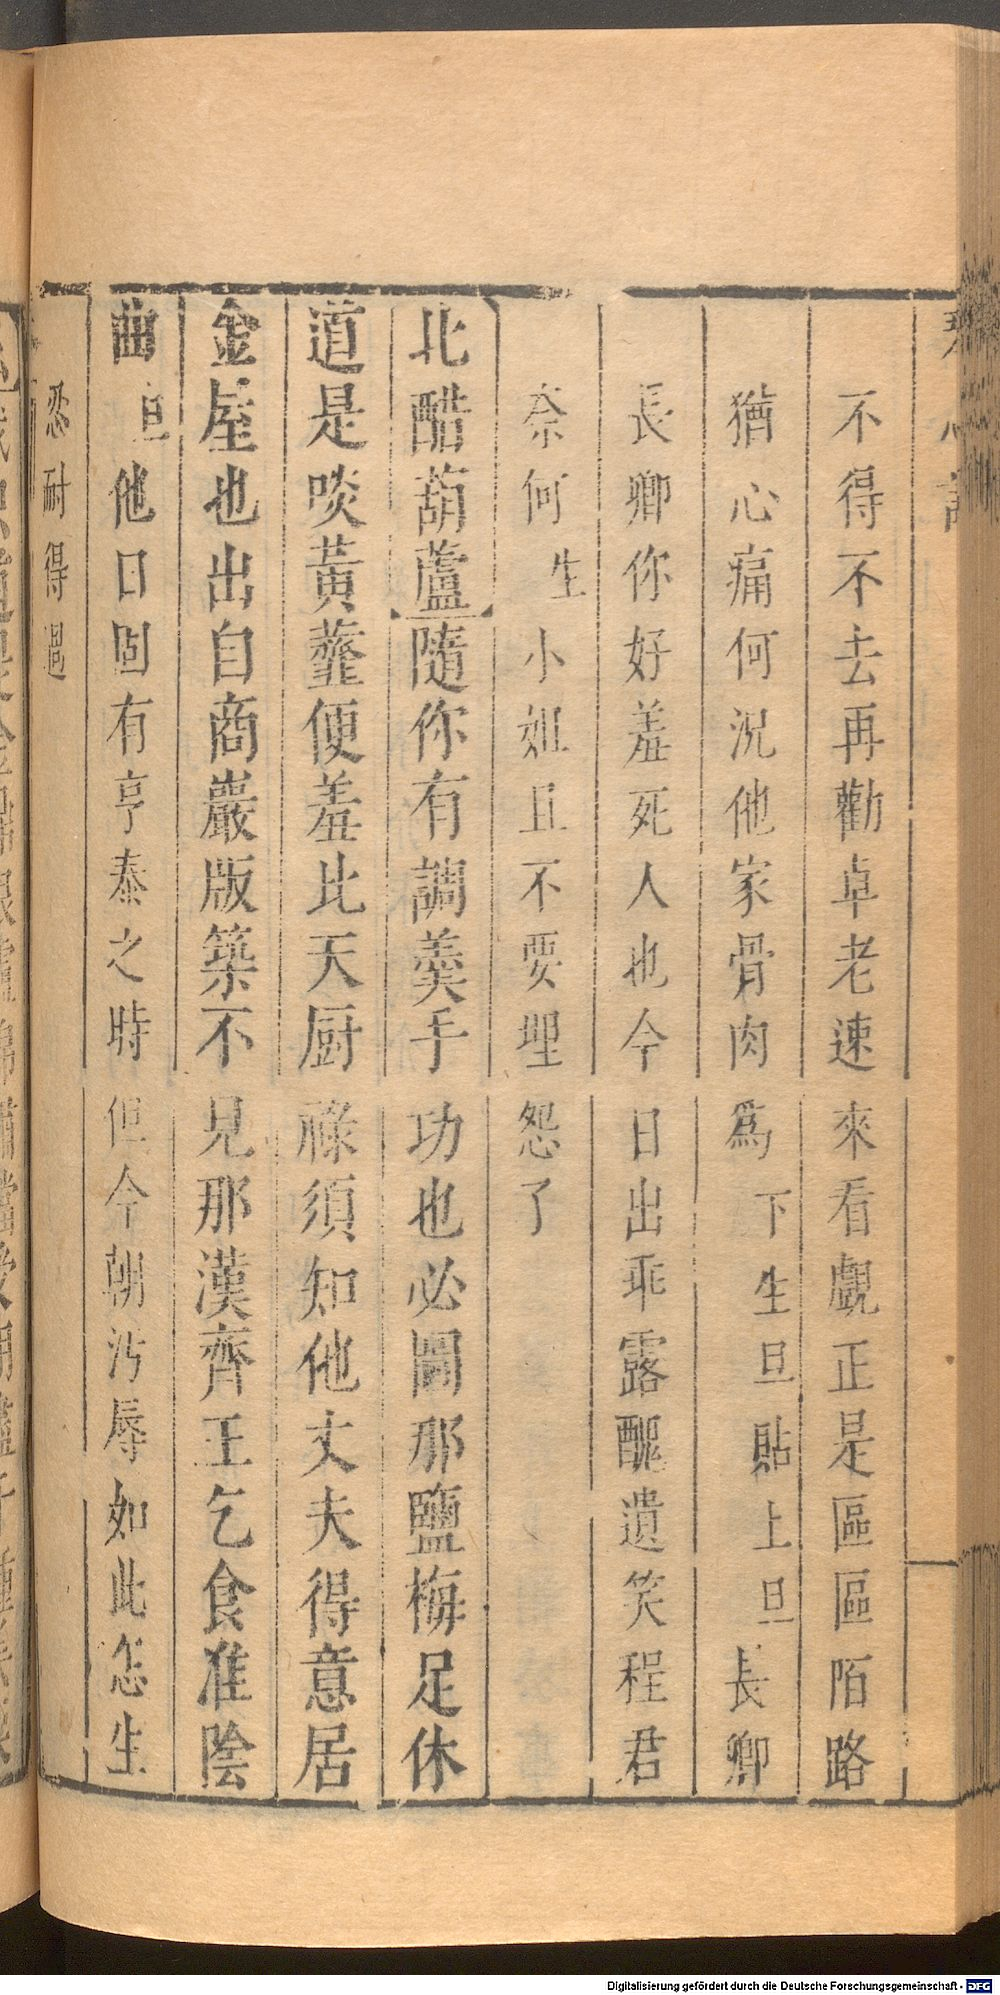 不得不去再勸卓老速來看覷正是區區陌路
猶心痛何況他家骨肉爲 下 生旦貼上 旦 長卿
長卿你好羞死人也今日出乖露醜遺笑程君
奈何 生 小姐且不要埋怨了
北酷葫蘆隨你有調羹手功也必圖那鹽梅足休
道是啖黃虀便羞比天厨祿須知他丈夫得意居
金屋也出自商巖版築不見那漢齊王乞食淮陰
曲 旦 他日固有亨泰之時但今朝汚辱如此怎生
忍耐得過
Digitalisierung gefördert durch die Deutsche Forschungsgemeinschaft - DFG